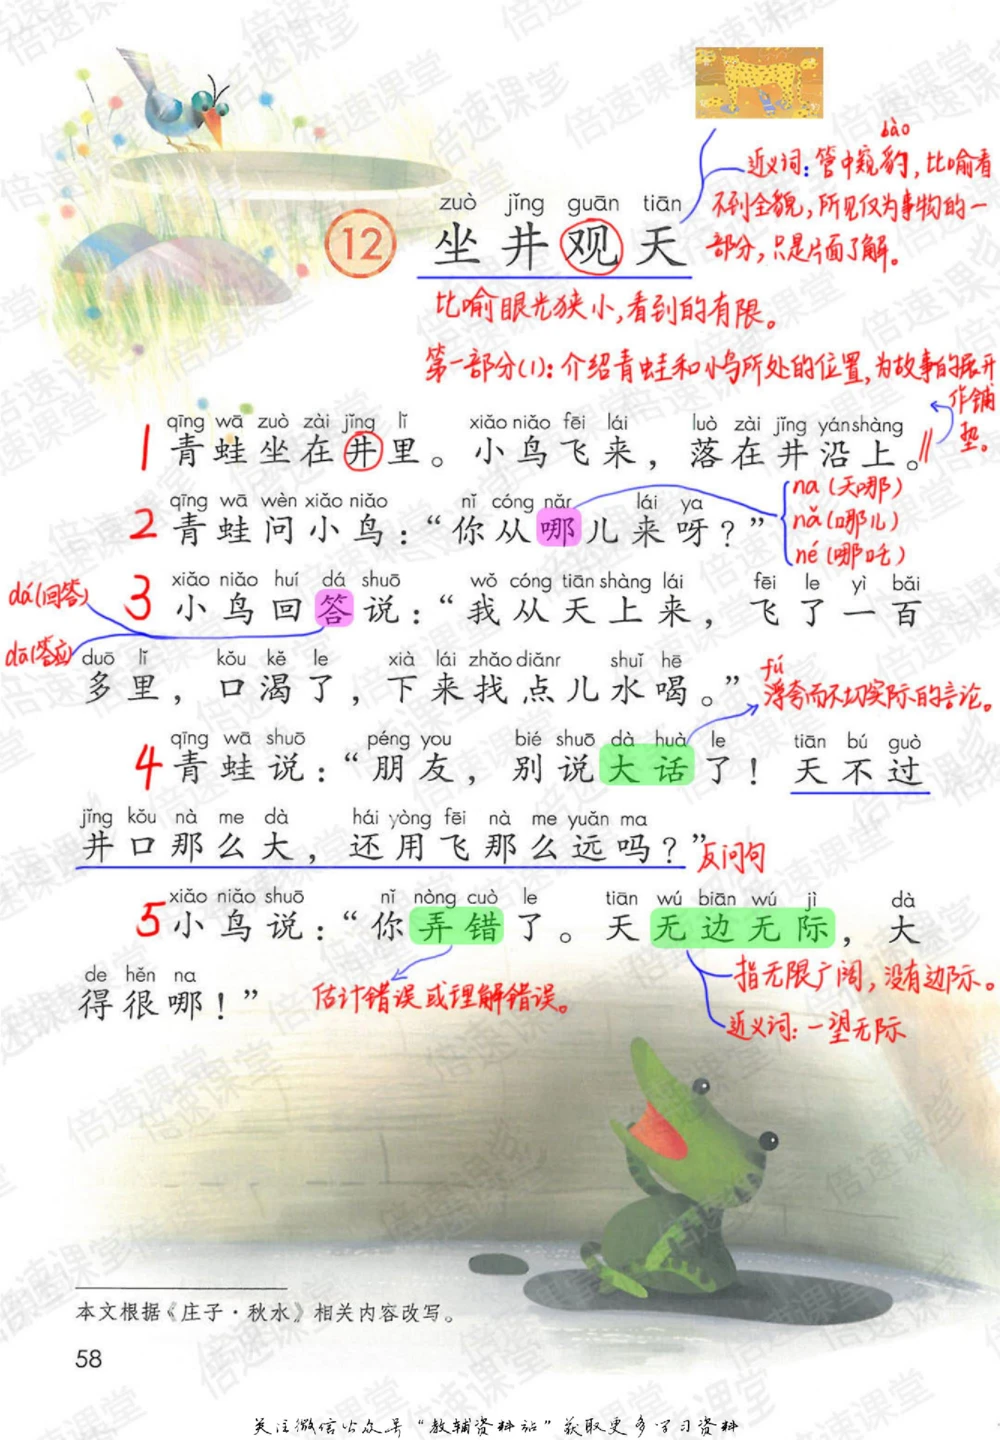 bào
近义词：管中窥豹，比喻看
不到全貌，所见仅为事物的一
部分，只是片面了解。
zuò jǐng guān tiān
12 坐井观天
比喻眼光狭小，看到的有限。
第一部分(1)：介绍青蛙和小鸟所处的位置，为故事的展开
作铺
垫。
qīng wā zuò zài jǐng lǐ xiǎo niǎo fēi lái luò zài jǐng yán shàng
1 青蛙坐在井里。小鸟飞来，落在井沿上。
qīng wā wèn xiǎo niǎo nǐ cóng nǎr lái ya
2 青蛙问小鸟：“你从哪儿来呀？”
na(天哪)
nǎ(哪儿)
né(哪吒)
xiǎo niǎo huí dá shuō wǒ cóng tiān shàng lái fēi le yì bǎi
3 小鸟回答说：“我从天上来，飞了一百
dá(回答)
dā(答应)
duō lǐ kǒu kě le xià lái zhǎo diǎnr shuǐ hē
多里，口渴了，下来找点儿水喝。”
fú
浮夸而不切实际的言论。
qīng wā shuō péng you bié shuō dà huà le tiān bú guò
4 青蛙说：“朋友，别说大话了！天不过
jǐng kǒu nà me dà hái yòng fēi nà me yuǎn ma
井口那么大，还用飞那么远吗？”
反问句
xiǎo niǎo shuō nǐ nòng cuò le tiān wú biān wú jì dà
5 小鸟说：“你弄错了。天无边无际，大
de hěn na
得很哪！”
估计错误或理解错误。
指无限广阔，没有边际。
近义词：一望无际
本文根据《庄子·秋水》相关内容改写。
58
关注微信公众号“教辅资料站”获取更多学习资料
倍速课堂